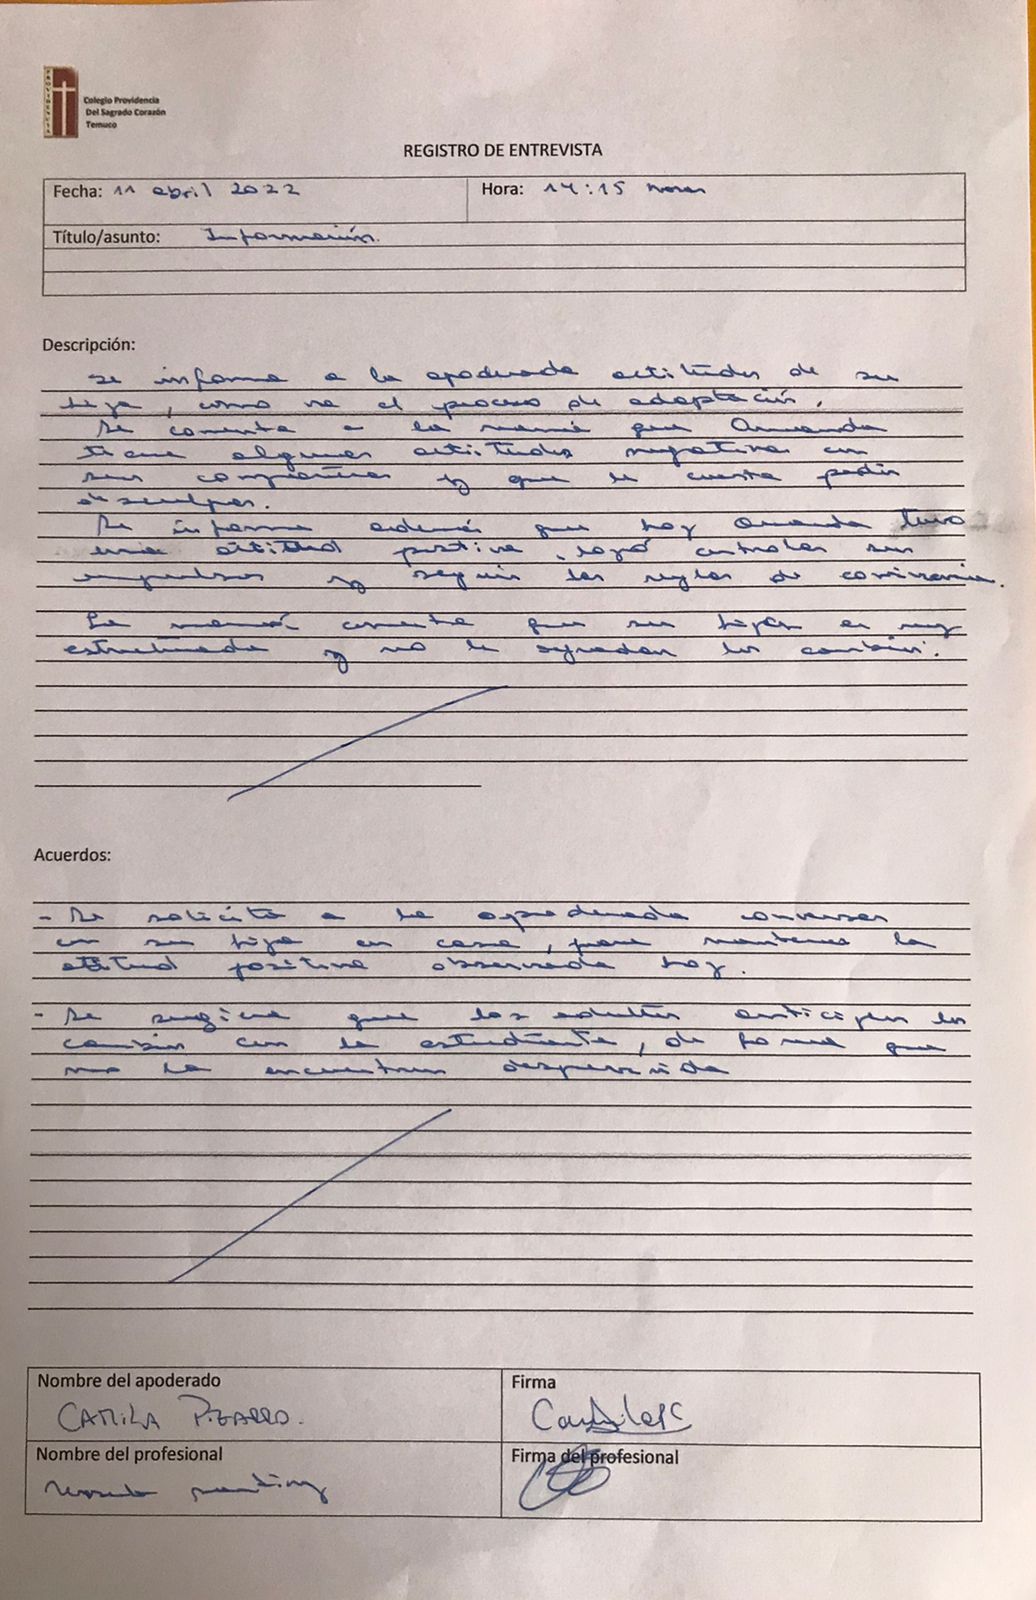 PROVIDENCIA
Colegio Providencia
Del Sagrado Corazón
Temuco
REGISTRO DE ENTREVISTA
Fecha: 11 abril 2022 Hora: 14:15 horas
Título/asunto: Información.
Descripción:
Se informa a la apoderada actitudes de su
hija, como va el proceso de adaptación.
Se comenta a la mamá que Amanda
tiene algunas actitudes negativas con
sus compañeros y que le cuesta pedir
disculpas.
Se informa además que hoy Amanda tuvo
una actitud positiva, logró controlar sus
impulsos y seguir las reglas de convivencia.
La mamá comenta que su hija es muy
estructurada y no le agradan los cambios.
Acuerdos:
- Se solicita a la apoderada conversar
con su hija en casa, para mantener la
actitud positiva observada hoy.
- Se sugiere que los adultos anticipen los
cambios con la estudiante, de forma que
no la encuentren desprevenida
Nombre del apoderado Firma
CAMILA PIZARRO.
Nombre del profesional Firma del profesional